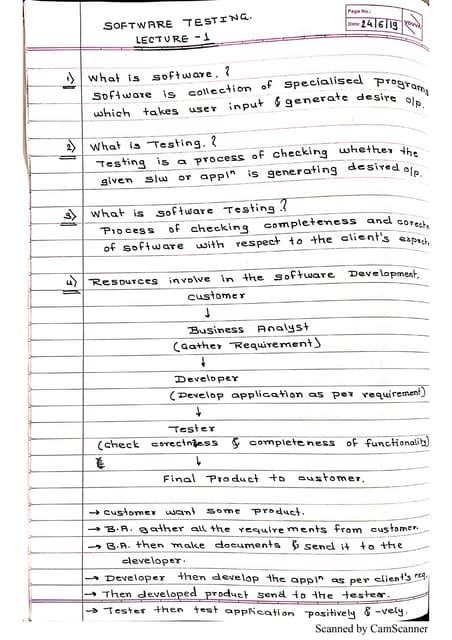 SOFTWARE TESTING.
LECTURE -1
Page No.:
Date: 24/6/19
YOUVA
1) What is software.?
Software is collection of specialised programs
which takes user input & generate desire o/p.
2) What is Testing.?
Testing is a process of checking whether the
given s/w or applⁿ is generating desired o/p.
3) What is software Testing?
Process of checking completeness and corectn
of software with respect to the client's expect
4) Resources involve in the software Development.
customer
↓
Business Analyst
(Gather Requirement)
↓
Developer
(Develop application as per requirement)
↓
Tester
(check corectness & completeness of functionality)
↓
Final Product to customer.
→ customer want some product.
→ B.A. gather all the requirements from customer.
→ B.A. then make documents & send it to the
developer.
→ Developer then develop the applⁿ as per client's req.
→ Then developed product send to the tester.
→ Tester then test application positively & -vely.
Scanned by CamScanner